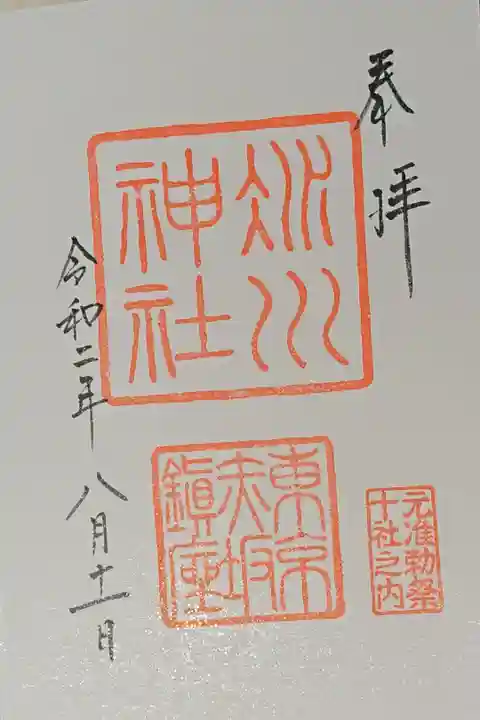 奉拝
氷川
神社
東京
赤坂
鎮座
元准勅祭
十社之内
令和二年 八月十一日